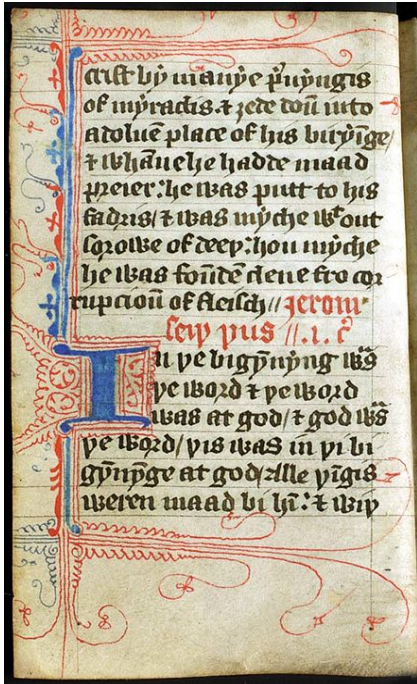 crist bi manye pͥuyngis
of myraclis. ⁊ ȝede doū into
a doluē place of his biryinge/
⁊ whāne he hadde maad
preier: he was putt to his
fadris/ ⁊ was myche wᵗout
sorowe of deeþ: hou myche
he was foūde clene fro cor
rupcioū of fleisch // Jerom
seiþ þus //. .i. cͦ
In þe bigȳnyng wᵃs
þe word ⁊ þe word
was at god/ ⁊ god wᵃs
þe word/ þis was in þi bi
gȳnynge at god/ Alle þīgis
weren maad bi hī: ⁊ wiþ